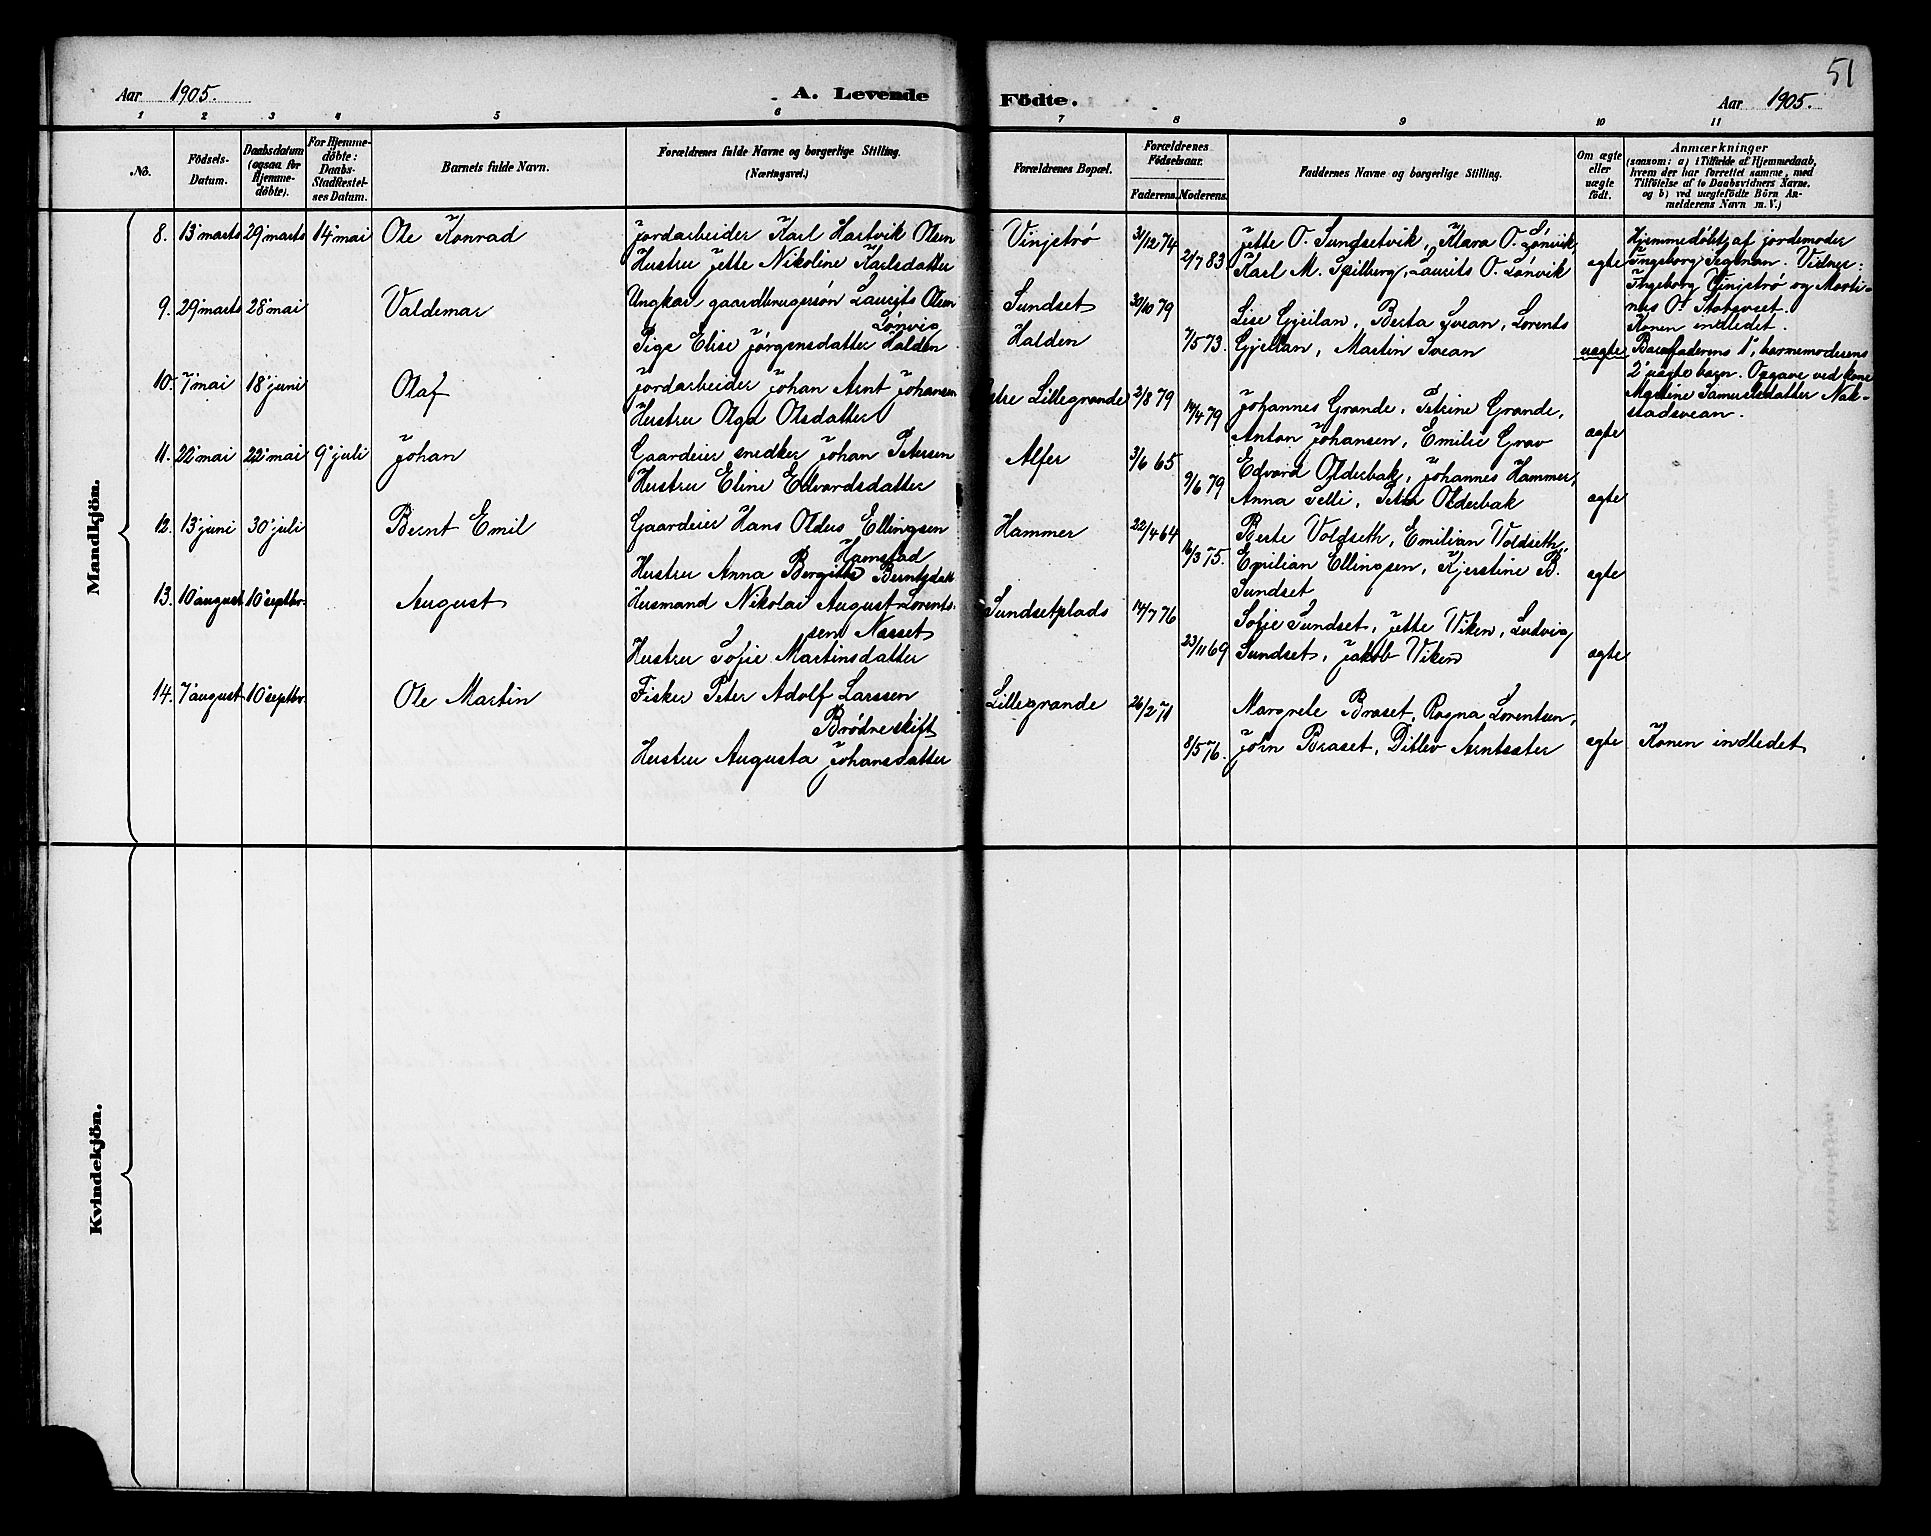 51
Aar 1905. A. Levende Födte. Aar 1905.
1 2 3 4 5 6 7 8 9 10 11
No.
Födsels-Datum.
Daabsdatum (ogsaa for Hjemmedöbte).
For Hjemmedöbte: Daabs-Stadfæstelses Datum.
Barnets fulde Navn.
Forældrenes fulde Navne og borgerlige Stilling.
(Næringsvei.)
Forældrenes Bopæl.
Forældrenes Födselsaar.
Faderens. Moderens.
Faddernes Navne og borgerlige Stilling.
Om ægte eller uægte födt.
Anmærkninger
(saasom: a) i Tilfælde af Hjemmedaab,
hvem der har forrettet samme, med
Tilföielse af to Daabsvidners Navne,
og b) ved uægtefödte Börn An-
melderens Navn m. V.)
Mandkjön.
8. 13' marts 29' marts 14' mai Ole Konrad Jordarbeider Karl Hartvik Olsen Vinjströ 31/12 74 Jette O. Sundsetvik, Klara O. Lönvik,
Hustru Jette Nikoline Karlsdatter 2/7 83 Karl M. Spilberg, Laurits O. Lönvik ægte
Hjemmedöbt af jordemoder
Ingeborg Segtnan. Vidner:
Ingeborg Vinjströ og Marti-
nus O. Statsvset.
Konen indledet.
9. 29' marts 28' mai Valdemar Ungkar gaardbrugersön Laurits Olsen Sundset 30/10 79
Lönvig Lise Gjeilan, Berta Svean, Lorents
Pige Elise Jörgensdatter Halden Halden 7/5 73. Gjeilan, Martin Svean uægte
Barnefaderens 1', barnemoderens
2' uægte barn. Opgave ved kone
Mgdine Samuelsdatter Nak-
stadsvean.
10. 7' mai 18' juni Olaf Jordarbeider Johan Arnt Johansen Lillegrande 2/8 79 Johannes Grande, Petrine Grande,
Hustru Olga Olsdatter 14/4 79 Anton Johansen, Emilie Grav ægte
11. 22' mai 22' mai 9' juli Johan Gaardeier snedker Johan Petersen Alfer 3/6 65 Edvard Olderbak, Johannes Hammer,
Hustru Eline Edvardsdatter 9/6 79 Anna Selli, Peter Olderbak ægte
12. 13' juni 30' juli Bernt Emil Gaardeier Hans Oldus Ellingsen Hammer 22/4 64 Berte Voldseth, Emilian Voldseth,
Hamstad
Hustru Anna Bergitta Berntsdatt 16/3 75. Emilian Ellingsen, Kjerstine B.
Sundset ægte
13. 10' august 10' septbr. August Husmand Nikolai August Lorents- Sundsetplads 14/7 76 Sofie Sundset, Jette Viken, Ludvig
sen Næsset
Hustru Sofie Martinsdatter 23/11 69 Sundset, Jakob Viken ægte
14. 7' august 10' septbr. Ole Martin Fisker Peter Adolf Larssen Lillegrande 26/2 71 Margrete Braset, Ragna Lorentsen,
Brödreskift
Hustru Augusta Johansdatter 8/5 76. Jörn Braset, Ditlev Arntsæter ægte Konen indledet
Kvindekjön.